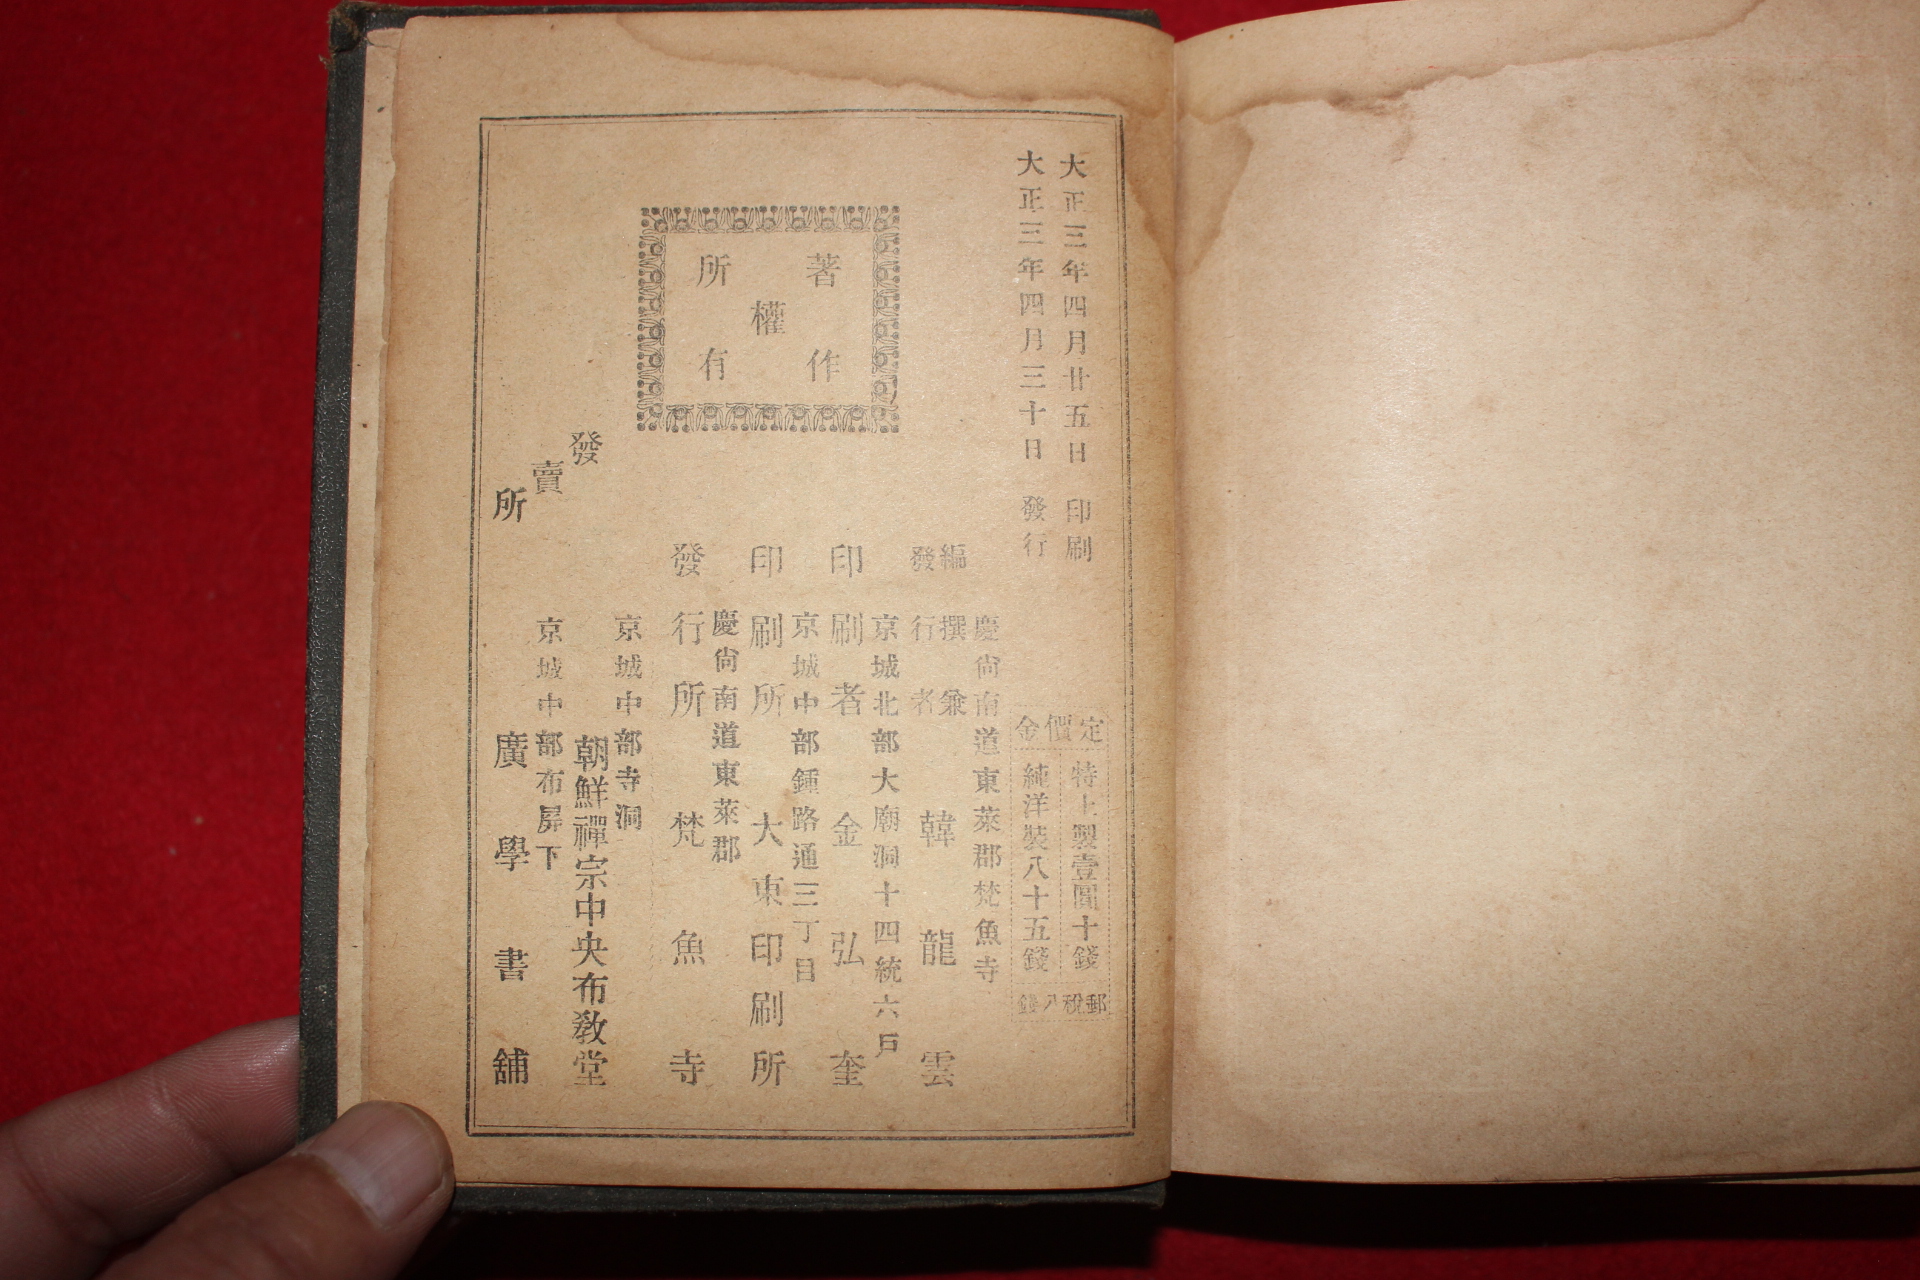 大正三年四月廿五日 印刷
大正三年四月三十日 發行
定價金
特上製壹圓十錢
純洋裝八十五錢
郵稅八錢
著作權所有
慶尙南道東萊郡梵魚寺
編撰兼
發行者 韓龍雲
京城北部大廟洞十四統六戶
印刷者 金弘奎
京城中部鍾路通三丁目
印刷所 大東印刷所
慶尙南道東萊郡
發行所 梵魚寺
發賣所
京城中部寺洞
朝鮮禪宗中央布敎堂
京城中部布屛下
廣學書舖